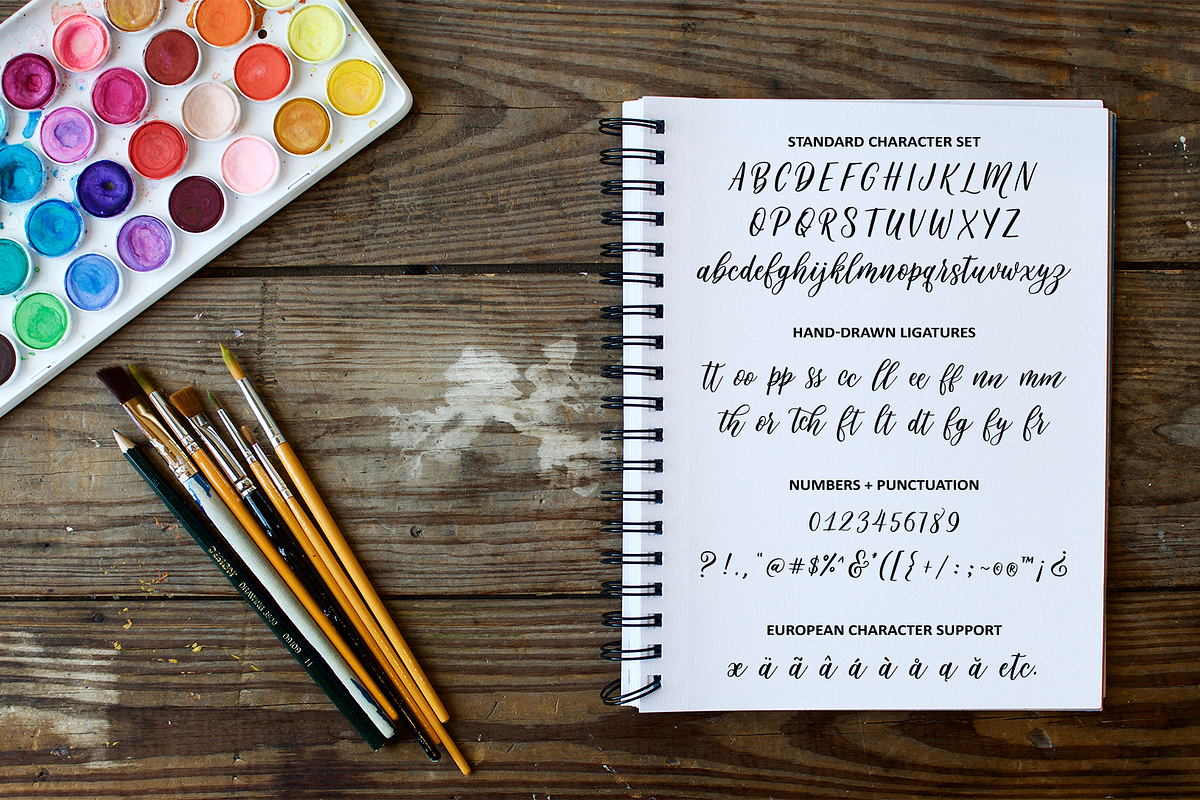 STANDARD CHARACTER SET
ABCDEFGHIJKLMN
OPQRSTUVWXYZ
abcdefghijklmnopqrstuvwxyz
HAND-DRAWN LIGATURES
tt oo pp ss cc ll ee ff nn mm
th or Tch ft lt dt fg fy fr
NUMBERS + PUNCTUATION
0123456789
?!.,"@#$%^&*([{+/:;~©®™¡¿
EUROPEAN CHARACTER SUPPORT
æ ä ã â á à å ą ă etc.
DRAWING